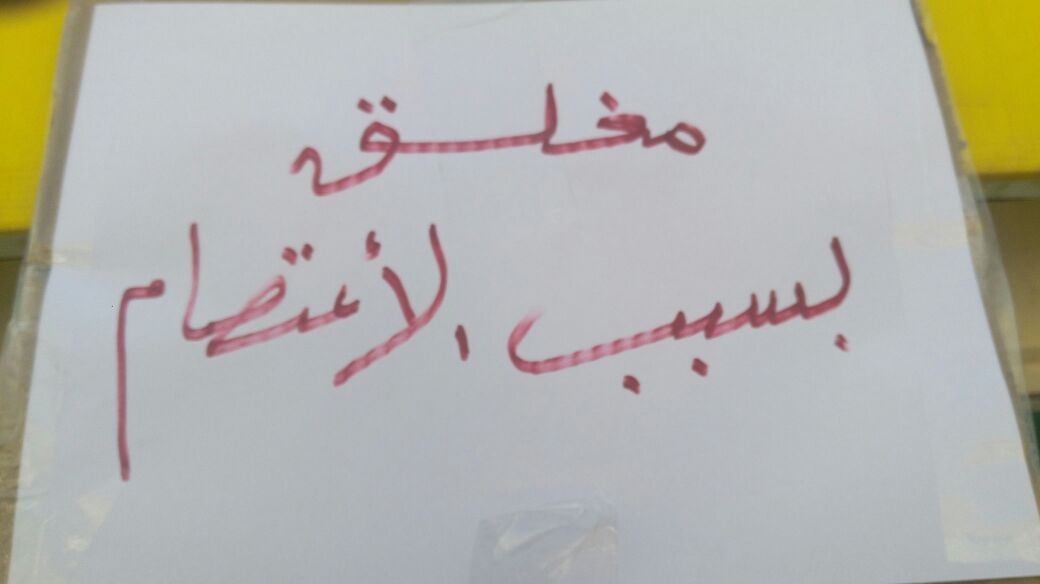 مغلق
بسبب الأعتصام